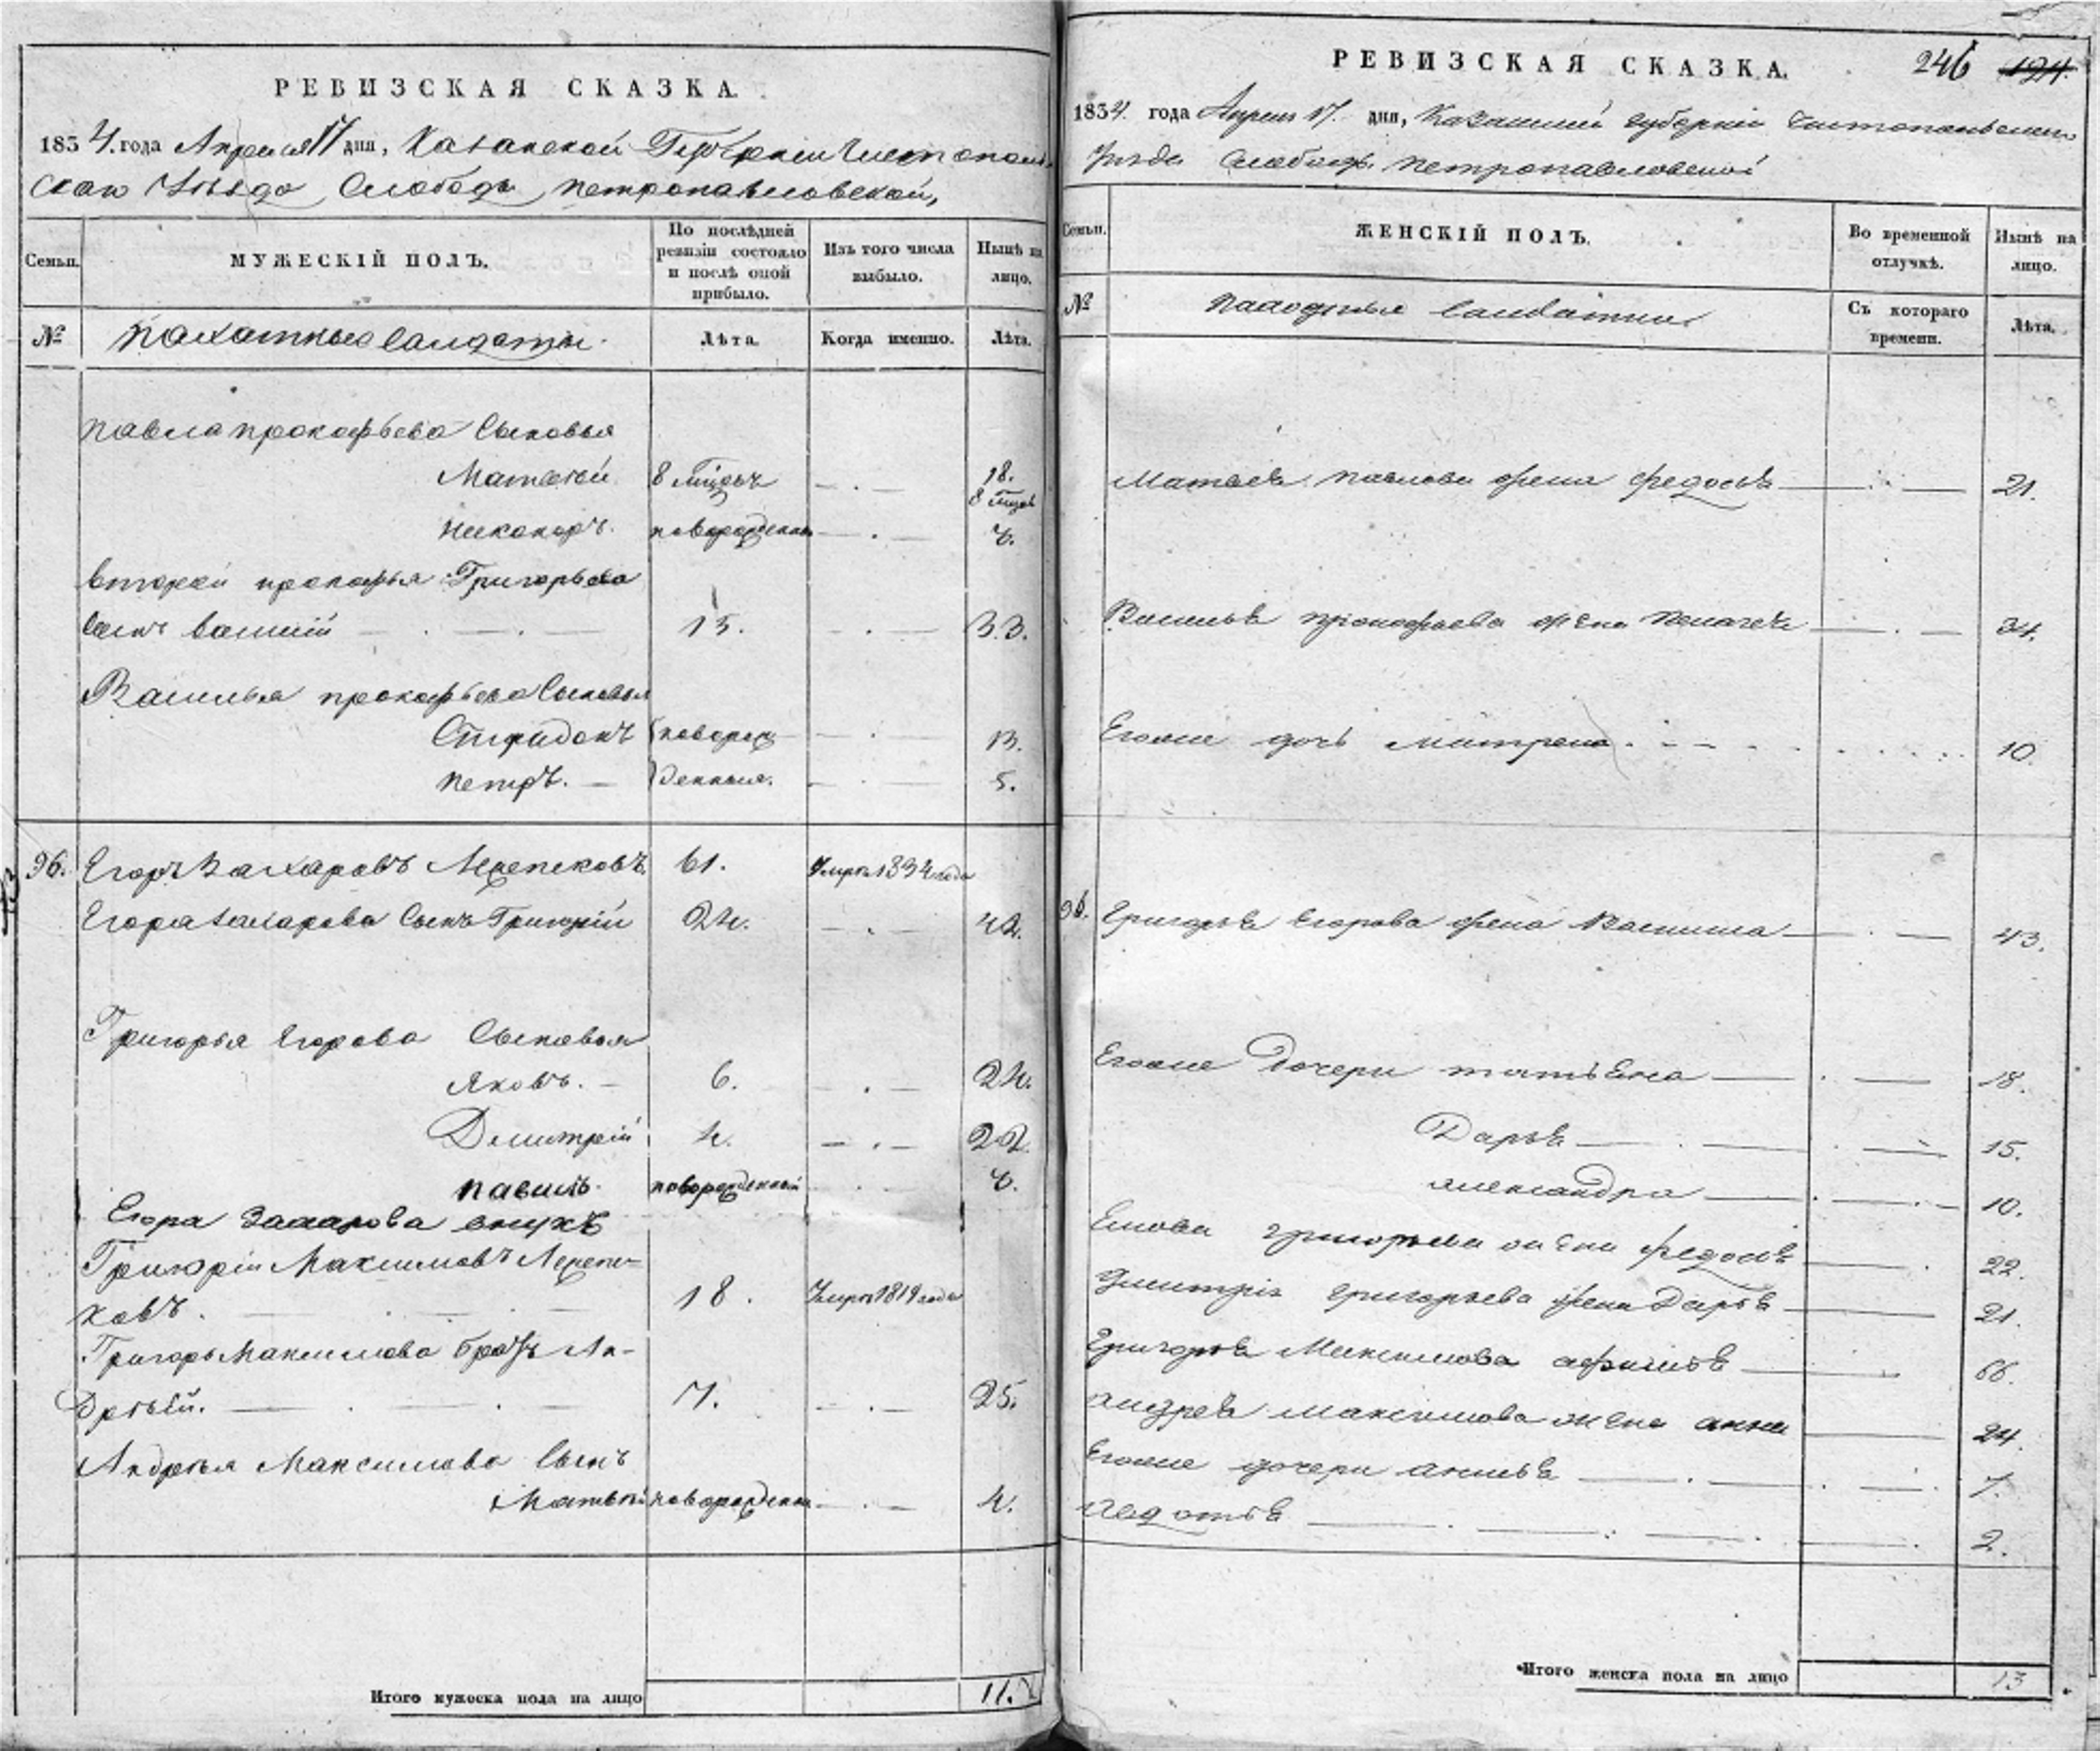 РЕВИЗСКАЯ СКАЗКА.
1834. года Апреля 17 дня, Казанской Губернии Чистополь-
скаго Уѣзда Слободы Петропавловской,
Семьи.
МУЖЕСКІЙ ПОЛЪ.
По послѣдней ревизіи состояло и послѣ оной прибыло.
Изъ того числа выбыло.
Нынѣ на лицо.
№
Пахатные Солдаты.
Лѣта.
Когда именно.
Лѣта.
Павла Прокофьева Сыновья
Матвѣй 8 18.
8
Никоноръ. новорожденный
Второй Прокофья Григорьева
Сынъ Василий 15. 33.
Василья Прокофьева Сыновья
новорож
Петръ. денные. 5.
96. Егоръ Захаровъ 61. Умеръ 1834 года
Егора Захарова Сынъ Григорій 24. 42.
Григорья Егорова Сыновья
Яковъ. 6. 24.
Дмитрій 4. 22.
Павелъ новорожденный
Егора Захарова внукъ
Григорій Максимовъ
ковъ. 18. Умеръ 1819 года
Григорья Максимова братъ Ан-
дрѣй. 7. 25.
Андрѣя Максимова Сынъ
Матвѣй новорожден 4.
Итого мужеска пола на лицо 11.
РЕВИЗСКАЯ СКАЗКА. 246 124.
1834. года Апреля 17. дня, Казанской Губерніи Чистопольскаго
Уѣзда Слободы Петропавловской
Семьи.
ЖЕНСКІЙ ПОЛЪ.
Во временной отлучкѣ.
Нынѣ на лицо.
№
Съ котораго времени.
Лѣта.
Матвѣя Павлова жена Федосья 21.
Василья Прокофьева жена Пелагея 34.
Еговые дочь Матрена 10.
96. Григорья Егорова жена Василиса 43.
Еговые Дочери Татьяна 18.
Дарья 15.
Александра 10.
Григорьева жена Федосья 22.
Дмитрія Григорьева жена Дарья 21.
Григорья Максимова 66.
Андрея Максимова жена Анна 24.
Еговые дочери 7.
Федотья 2.
Итого женска пола на лицо 13